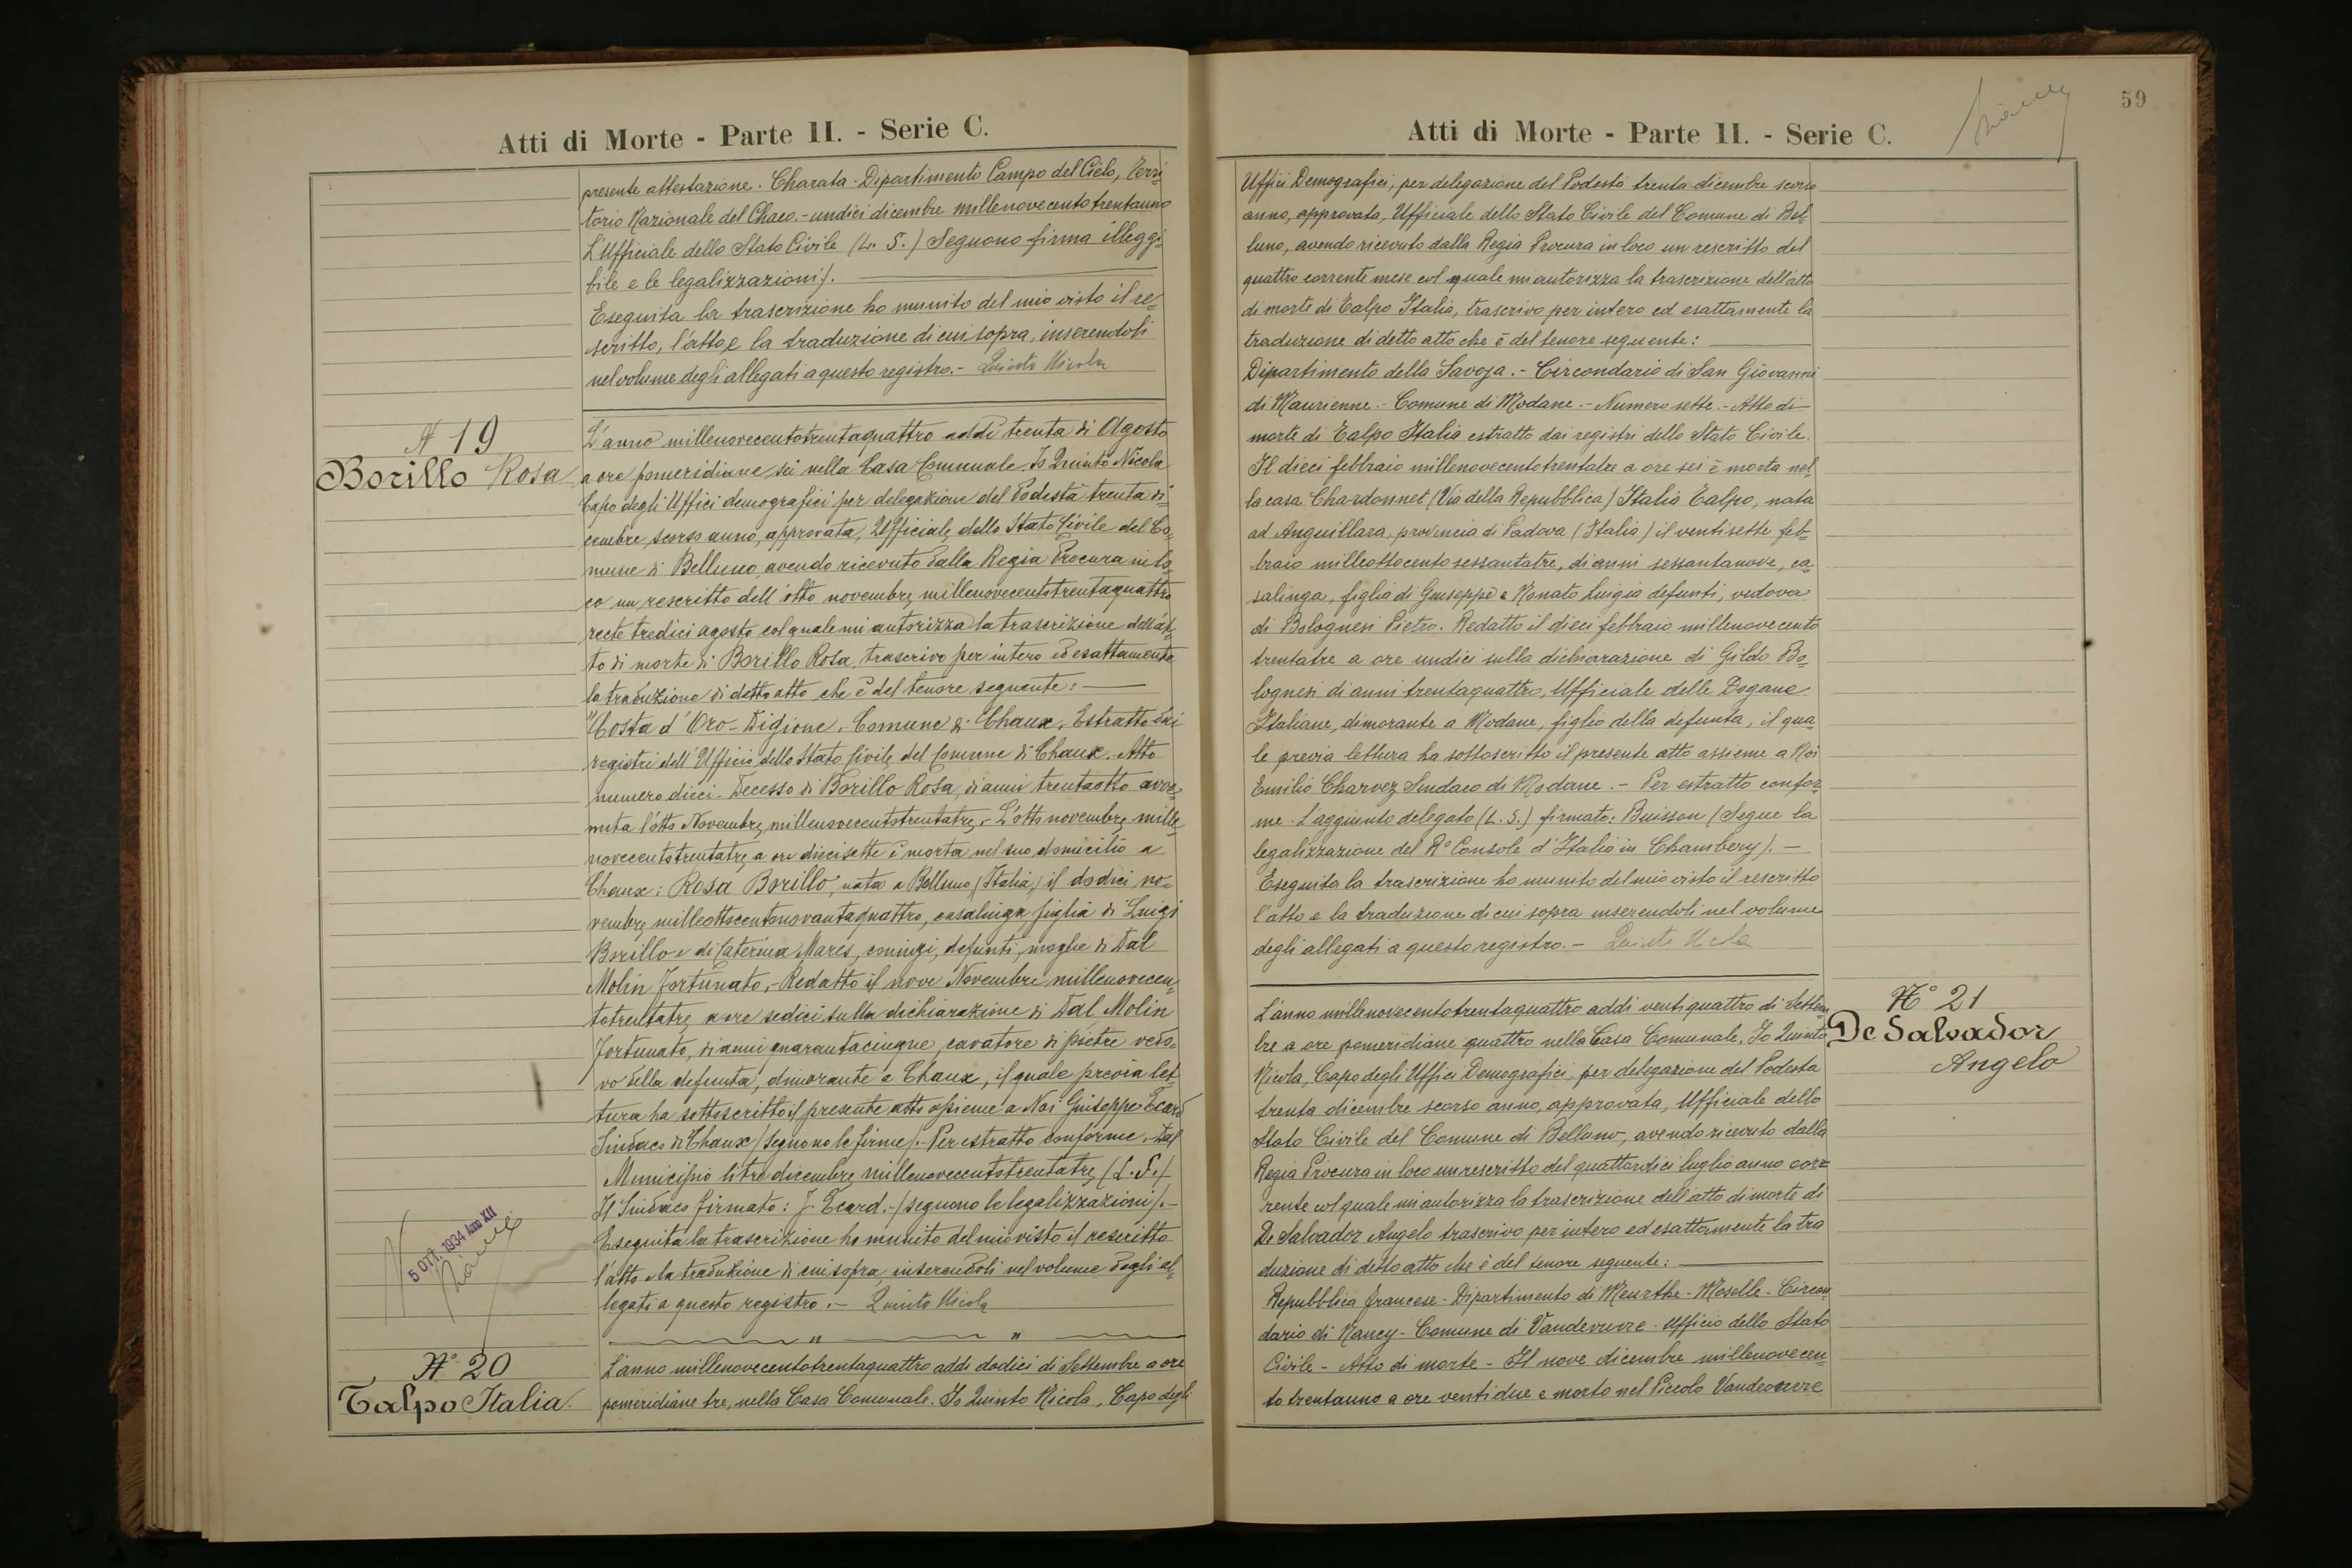 Atti di Morte - Parte II. - Serie C.
presente attestazione. Charata - Dipartimento Campo del Cielo, Terri-
torio Nazionale del Chaco. - undici dicembre millenovecentotrentauno
L'Ufficiale dello Stato Civile (L. S.) Seguono firma illeggi-
bile e le legalizzazioni).
Eseguita la trascrizione ho munito del mio visto il re-
scritto, l'atto e la traduzione di cui sopra, inserendoli
nel volume degli allegati a questo registro. - Quinto Nicola
N 19
Borillo Rosa
L'anno millenovecentotrentaquattro addì trenta di Agosto
a ore pomeridiane sei nella Casa Comunale. Io Quinto Nicola
Capo degli Uffici demografici per delegazione del Podestà trenta di-
cembre scorso anno, approvata, Ufficiale dello Stato Civile del Co-
mune di Belluno, avendo ricevuto dalla Regia Procura in lo-
co un rescritto dell'otto novembre millenovecentotrentaquattro
recte tredici agosto col quale mi autorizza la trascrizione dell'at-
to di morte di Borillo Rosa, trascrivo per intero ed esattamente
la traduzione di detto atto che è del tenore seguente:
"Costa d'Oro - Digione. Comune di Chaux. Estratto dai
registri dell'Ufficio dello Stato Civile del Comune di Chaux. Atto
numero dieci. Decesso di Borillo Rosa, di anni trentaotto avve-
nuta l'otto Novembre millenovecentotrentatre. - L'otto novembre mille
novecentotrentatre a ore diecisette è morta nel suo domicilio a
Chaux: Rosa Borillo, nata a Belluno (Italia) il dodici no-
vembre milleottocentonovantaquattro, casalinga figlia di Luigi
Borillo e di Caterina Mares, coniugi, defunti, moglie di Dal
Molin Fortunato. - Redatto il nove Novembre millenovecen-
totrentatre a ore sedici sulla dichiarazione di Dal Molin
Fortunato, di anni quarantacinque, cavatore di pietre vedo-
vo della defunta, dimorante a Chaux, il quale previa let-
tura ha sottoscritto il presente atto assieme a Noi Giuseppe Ecard
Sindaco di Chaux (seguono le firme). - Per estratto conforme. Dal
Municipio li tre dicembre millenovecentotrentatre (L. S.)
Il Sindaco firmato: J. Ecard. - (seguono le legalizzazioni). -
Eseguita la trascrizione ho munito del mio visto il rescritto
l'atto e la traduzione di cui sopra, inserendoli nel volume degli al-
legati a questo registro. - Quinto Nicola
5 OTT. 1934 Anno XII
N° 20
Talpo Italia.
L'anno millenovecentotrentaquattro addì dodici di Settembre a ore
pomeridiane tre, nella Casa Comunale. Io Quinto Nicola, Capo degli
59
Atti di Morte - Parte II. - Serie C.
Uffici Demografici, per delegazione del Podestà trenta dicembre scorso
anno, approvata, Ufficiale dello Stato Civile del Comune di Bel-
luno, avendo ricevuto dalla Regia Procura in loco un rescritto del
quattro corrente mese col quale mi autorizza la trascrizione dell'atto
di morte di Talpo Italia, trascrivo per intero ed esattamente la
traduzione di detto atto che è del tenore seguente:
Dipartimento della Savoja. - Circondario di San Giovanni
di Maurienne. - Comune di Modane. - Numero sette. - Atto di
morte di Talpo Italia estratto dai registri dello Stato Civile.
Il dieci febbraio millenovecentotrentatre a ore sei è morta nel-
la casa Chardonnet (Via della Repubblica) Italia Talpo, nata
ad Anguillara, provincia di Padova (Italia) il ventisette feb-
braio milleottocentosessantatre, di anni sessantanove, ca-
salinga, figlia di Giuseppe e Monato Luigia defunti, vedova
di Bolognesi Pietro. Redatto il dieci febbraio millenovecento
trentatre a ore undici sulla dichiarazione di Gildo Bo-
lognesi di anni trentaquattro, Ufficiale delle Dogane
Italiane, dimorante a Modane, figlio della defunta, il qua-
le previa lettura ha sottoscritto il presente atto assieme a Noi
Emilio Charvez Sindaco di Modane. - Per estratto confor-
me. L'aggiunto delegato (L. S.) firmato: Buisson (Segue la
legalizzazione del R° Console d'Italia in Chambery). -
Eseguita la trascrizione ho munito del mio visto il rescritto
l'atto e la traduzione di cui sopra inserendoli nel volume
degli allegati a questo registro. - Quinto Nicola
N° 21
De Salvador
Angelo
L'anno millenovecentotrentaquattro addì ventiquattro di Settem-
bre a ore pomeridiane quattro nella Casa Comunale. Io Quinto
Nicola, Capo degli Uffici Demografici, per delegazione del Podestà
trenta dicembre scorso anno, approvata, Ufficiale dello
Stato Civile del Comune di Belluno, avendo ricevuto dalla
Regia Procura in loco un rescritto del quattordici luglio anno cor-
rente col quale mi autorizza la trascrizione dell'atto di morte di
De Salvador Angelo trascrivo per intero ed esattamente la tra
duzione di detto atto che è del tenore seguente:
Repubblica francese - Dipartimento di Meurthe - Moselle - Circon-
dario di Nancy - Comune di Vandeuvre - Ufficio dello Stato
Civile - Atto di morte - Il nove dicembre millenovecen-
to trentauno a ore ventidue è morto nel Piccolo Vandeouvre